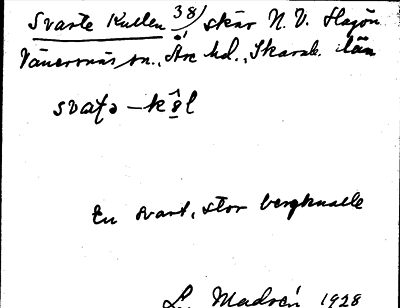 Svarte Kullen 38) skär N.V. Hagön
i
Vänersnäs sn., Åse hd., Skarab. län
svatə – kôl
En svart, stor bergknalle
L. Madsén 1928